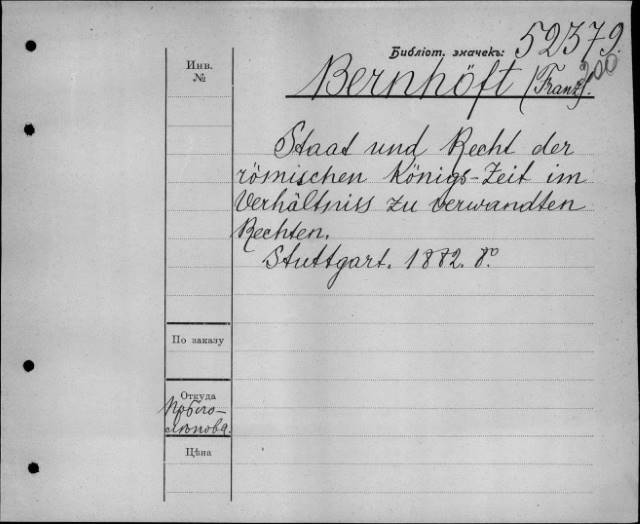 Библіот. значекъ: 52379.
200
Инв.
№
Bernhöft (Franz).
Staat und Recht der
römischen Königs-Zeit im
Verhältniss zu verwandten
Rechten.
Stuttgart. 1882. 8º.
По заказу
Откуда
Цѣна